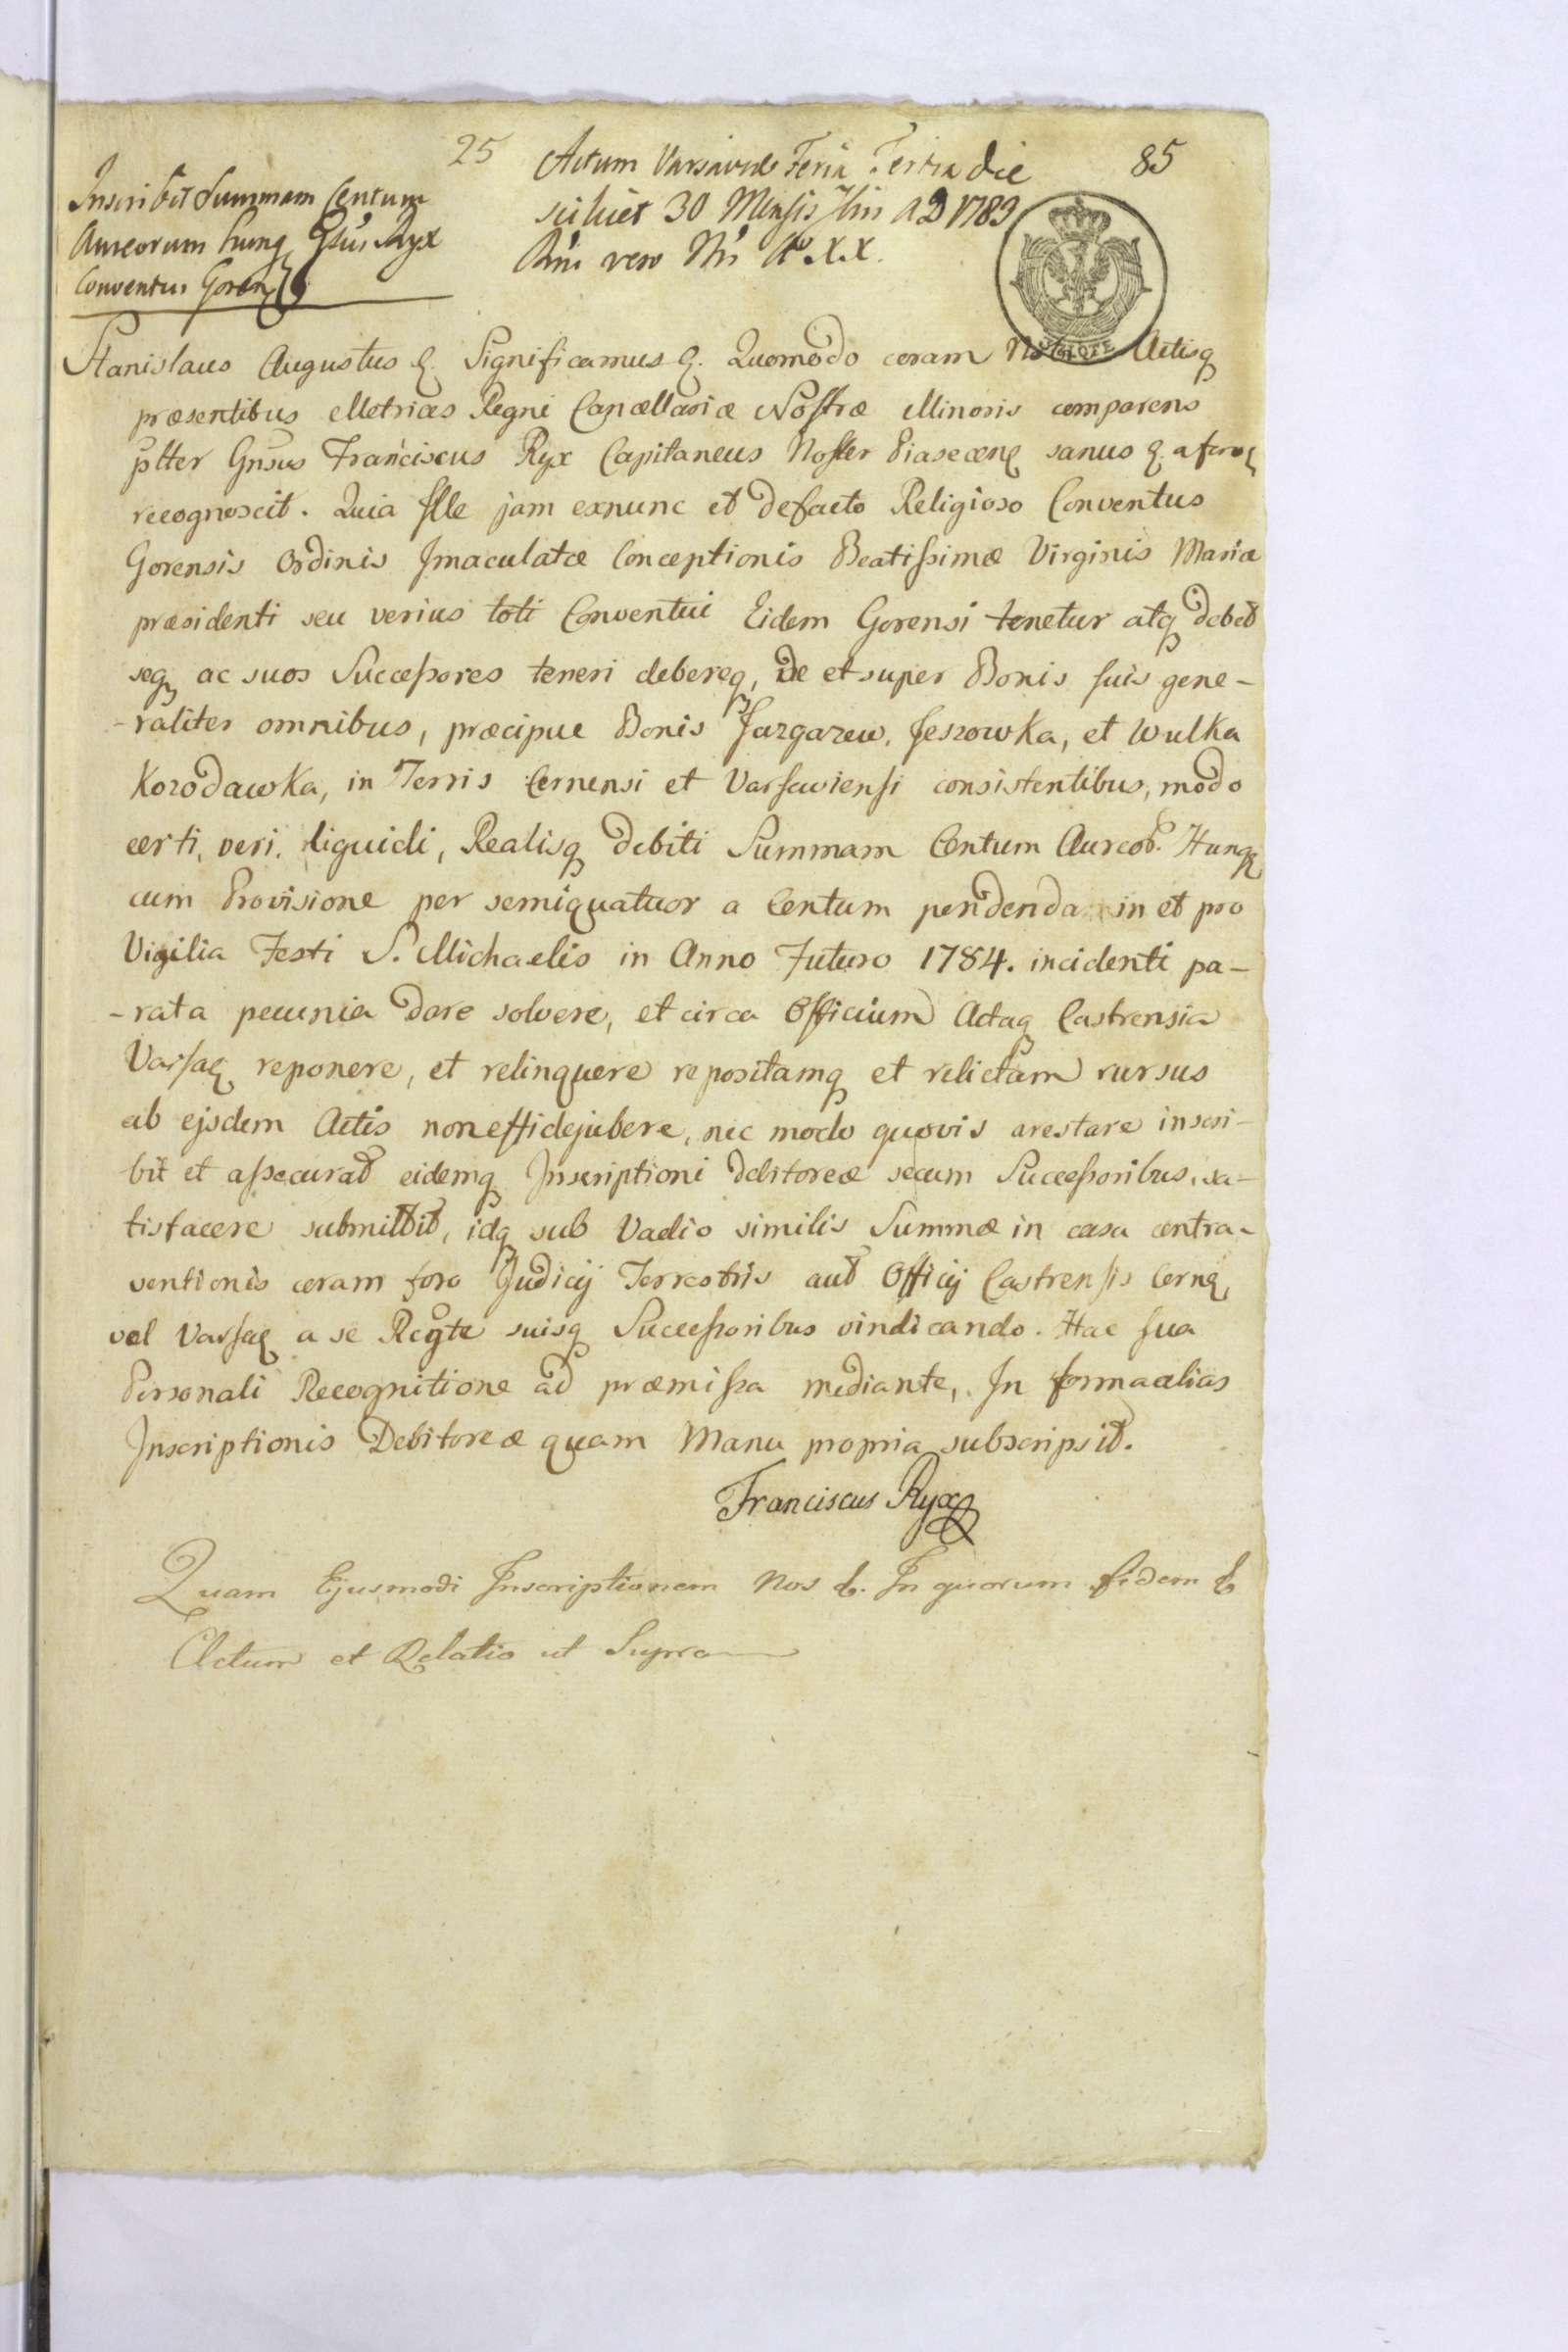 25
85
Actum Varsaviæ Feria Tertia die
scilicet 30 Mensis 7bris A D 1783
Rni vero Nri Ao XX.
Inscribit Summam Centum
Aureorum hung Gsus Ryx
Conventui Goren
Stanislaus Augustus &. Significamus &. Quomodo coram Actisq
præsentibus Metrices Regni Cancellariæ Nostræ Minoris comparens
pltter Gnsus Franciscus Ryx Capitaneus Noster Piasecen sanus &.
recognoscit. Quia Ille jam exnunc et defacto Religioso Conventus
Gorensis Ordinis Jmaculatæ Conceptionis Beatissimæ Virginis Mariæ
præsidenti seu verius toti Conventui Eidem Gorensi tenetur atq debet
seq ac suos Successores teneri debereq, de et super Bonis suis gene-
-raliter omnibus, præcipue Bonis Jazgarzew, Jeszowka, et Wulka
Kozodawka, in Terris Cernensi et Varsaviensi consistentibus, modo
certi, veri, liquidi, Realisq debiti Summam Centum Aureor. Hung
cum Provisione per semiquatuor a Centum pendenda in et pro
Vigilia Festi S. Michaelis in Anno Futuro 1784. incidenti pa-
-rata pecunia dare solvere, et circa Officium Actaq Castrensia
Varsaę reponere, et relinquere repositamq et relictam rursus
ab ejsdem Actis non effidejubere, nec modo quovis arestare inscri-
bit et assecurat eidemq Jnscriptioni debitoreæ secum Successoribus, sa-
tisfacere submittit, idq sub Vadio similis Summæ in casu contra-
ventionis coram foro Judicij Terrestris aut Officij Castrensis Cerne,
vel Varsaę a se Rcgte suisq Successoribus vindicando. Hac sua
Personali Recognitione ad præmissa mediante, Jn forma alias
Jnscriptionis Debitoreæ quam Manu propria subscripsit.
Franciscus Ryx
Quam Ejusmodi Jnscriptionem Nos &. Jn quorum fidem &
Actum et Relatio ut Supra